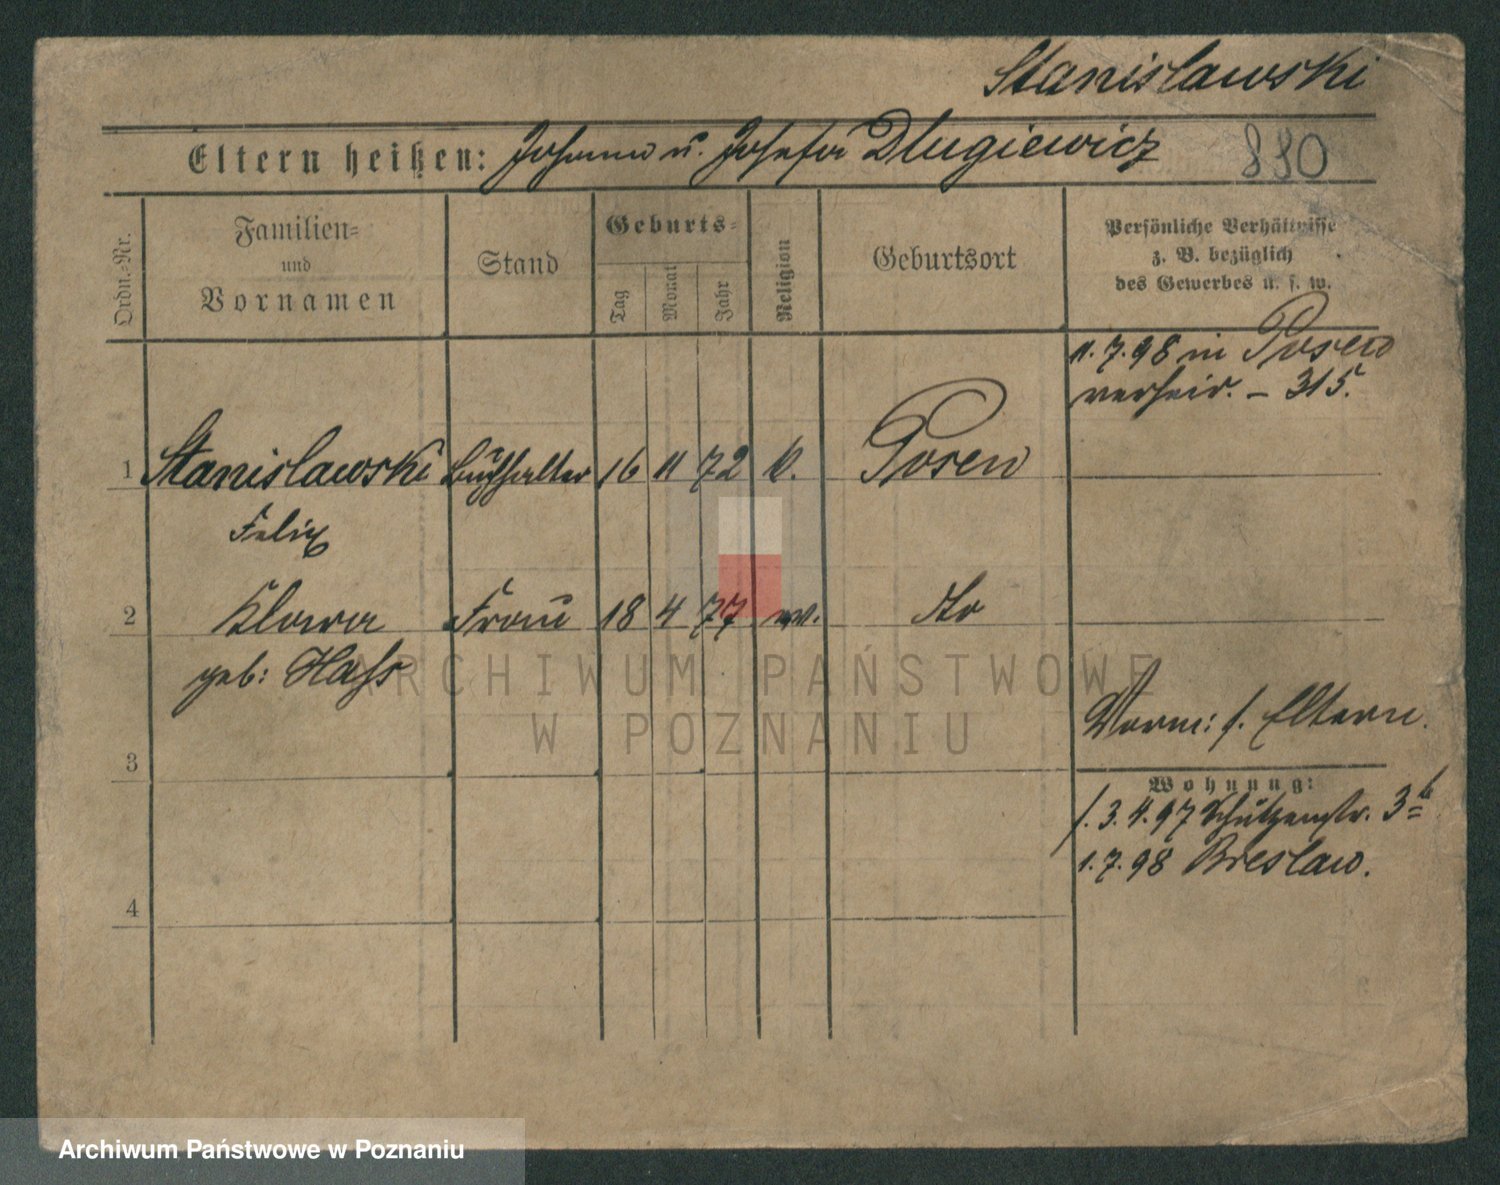 Stanislawski
Eltern heißen: Johann u. Josefa Dlugiewicz 880
Ordn.-Nr.
Familien-
und
Vornamen
Stand
Geburts-
Tag
Monat
Jahr
Religion
Geburtsort
Persönliche Verhältnisse
z. B. bezüglich
des Gewerbes u. s. w.
11.7.98 in Posen
verheir. - 315.
1 Stanislawski Buchhalter 16 11 72 k. Posen
Felix
2 Klara Frau 18 4 77 do
geb: Hass
ARCHIWUM PAŃSTWOWE
W POZNANIU
Vorm: s. Eltern.
3
Wohnung:
3.4.97 Schützenstr. 3b
1.7.98 Breslau.
4
Archiwum Państwowe w Poznaniu